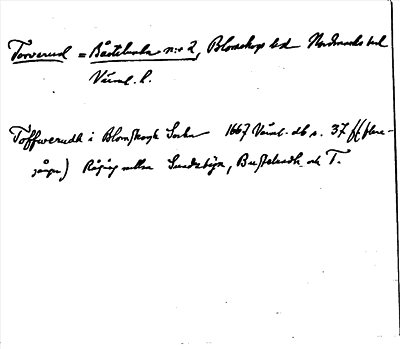 Torverud = Båstebacka n:o 2, Blomskogs sd Nordmarks hd
Värml. l.
Töffwerudh i Blomskogh Sochn 1667 Värml. db s. 37 ff (flere
gånger) Rågång mellan Sundzbyn, Bastebodh och T.